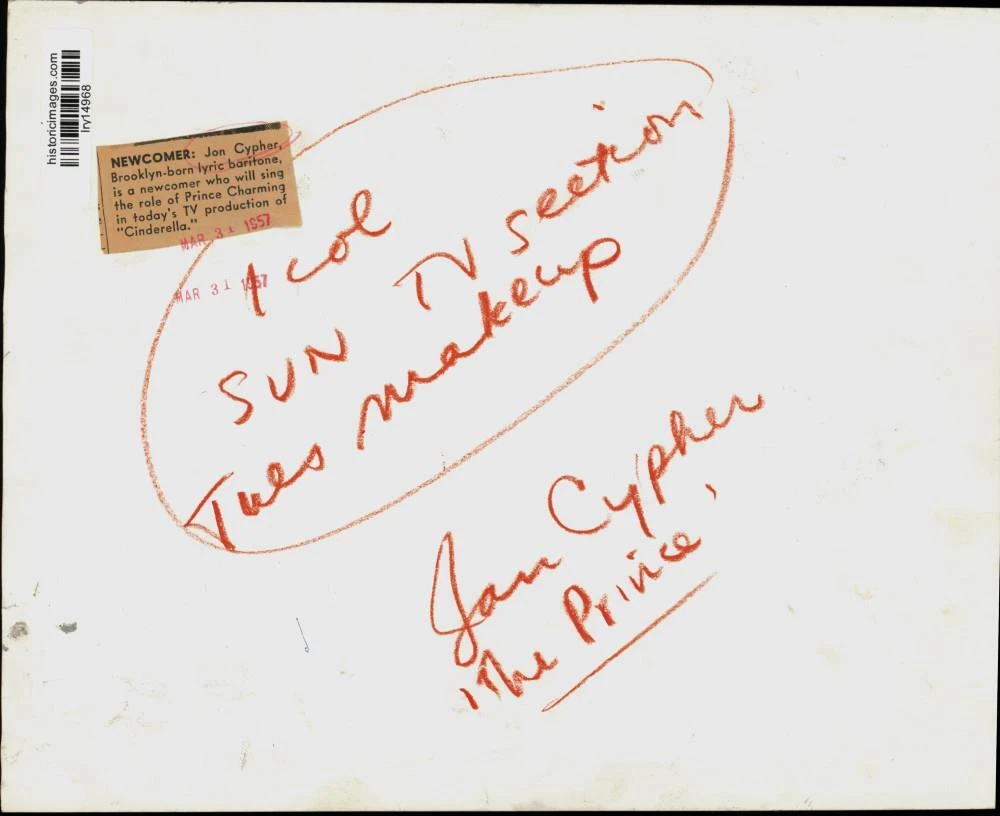 historicimages.com
lry14968
NEWCOMER: Jon Cypher,
Brooklyn-born lyric baritone,
is a newcomer who will sing
the role of Prince Charming
in today's TV production of
"Cinderella."
MAR 31 1957
MAR 31 1957
1 col
SUN TV section
Tues makeup
Jon Cypher
'The Prince'